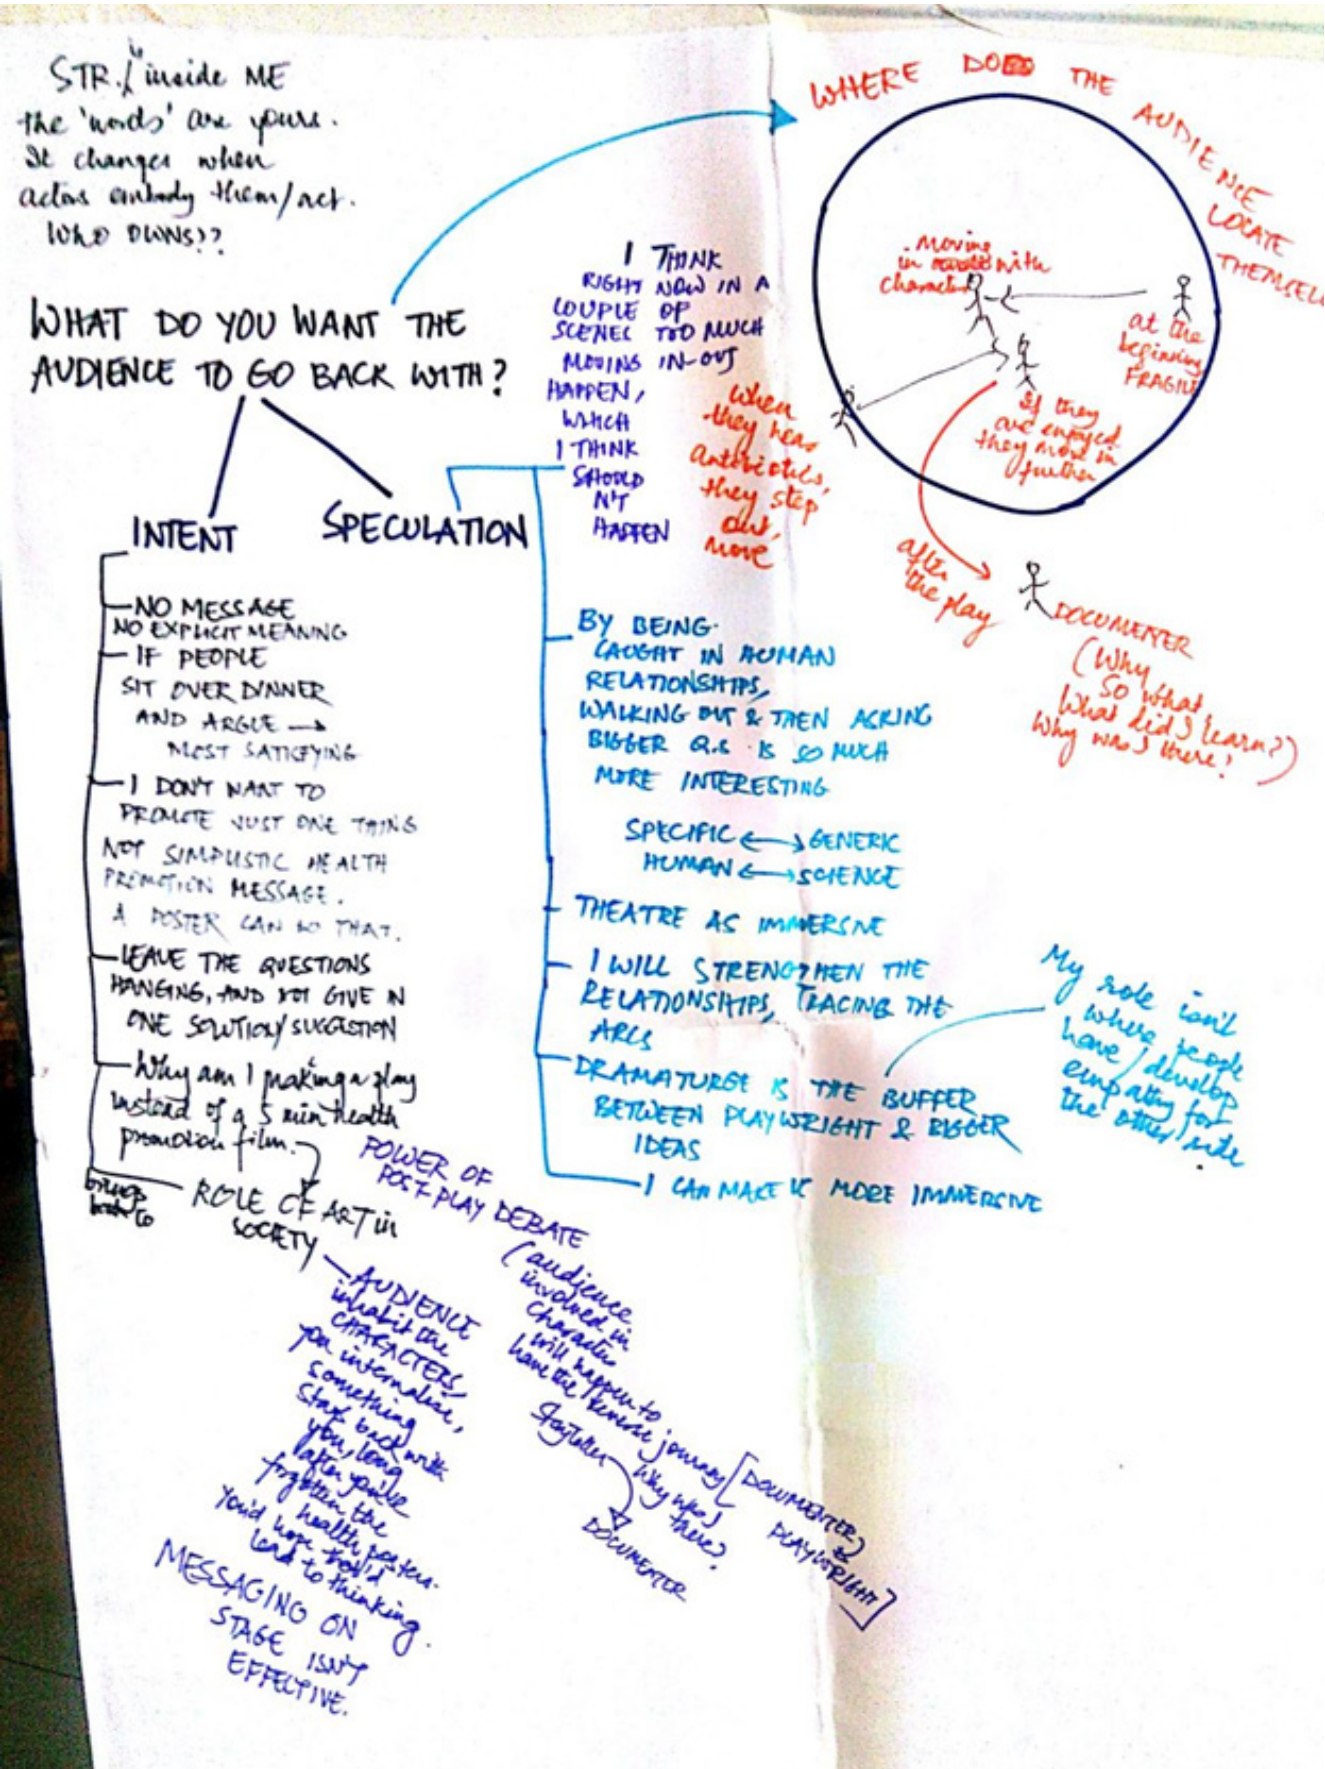 STR. / inside ME
the 'words' are yours.
It changes when
actors embody them/act.
WHO OWNS??
WHAT DO YOU WANT THE
AUDIENCE TO GO BACK WITH?
INTENT
NO MESSAGE
NO EXPLICIT MEANING
IF PEOPLE
SIT OVER DINNER
AND ARGUE →
MOST SATISFYING
I DON'T WANT TO
PROMOTE JUST ONE THING
NOT SIMPLISTIC HEALTH
PROMOTION MESSAGE.
A POSTER CAN DO THAT.
LEAVE THE QUESTIONS
HANGING, AND NOT GIVE IN
ONE SOLUTION/SUGGESTION
Why am I making a play
instead of a 5 min health
promotion film.
brings
back to
ROLE OF ART in
SOCIETY
AUDIENCE
inhabit the
CHARACTERS,
you internalise,
something
stays back with
you, long
after you've
forgotten the
health posters.
You'd hope that'd
lead to thinking.
MESSAGING ON
STAGE ISN'T
EFFECTIVE.
POWER OF
POST PLAY DEBATE
(audience
involved in
character
will happen to
have the reverse journey
Why was I
there?
Storyteller
DOCUMENTER
[DOCUMENTER,
PLAYWRIGHT]
SPECULATION
I THINK
RIGHT NOW IN A
COUPLE OF
SCENES TOO MUCH
MOVING IN-OUT
HAPPEN,
WHICH
I THINK
SHOULD
N'T
HAPPEN
when
they hear
antibiotics,
they step
out,
move
BY BEING
CAUGHT IN HUMAN
RELATIONSHIPS,
WALKING OUT & THEN ASKING
BIGGER Q.S IS SO MUCH
MORE INTERESTING
SPECIFIC ↔ GENERIC
HUMAN ↔ SCIENCE
THEATRE AS IMMERSIVE
I WILL STRENGTHEN THE
RELATIONSHIPS, TRACING THE
ARCS
DRAMATURGE IS THE BUFFER
BETWEEN PLAYWRIGHT & BIGGER
IDEAS
I CAN MAKE IT MORE IMMERSIVE
My role isn't
where people
have/develop
empathy for
the other side
WHERE DO THE AUDIENCE LOCATE THEMSEL
moving
in with
character
at the
beginning
FRAGILE
If they
are enjoyed
they move in
further
after
the play
DOCUMENTER
(Why
So what
What did I learn?)
Why was I there?